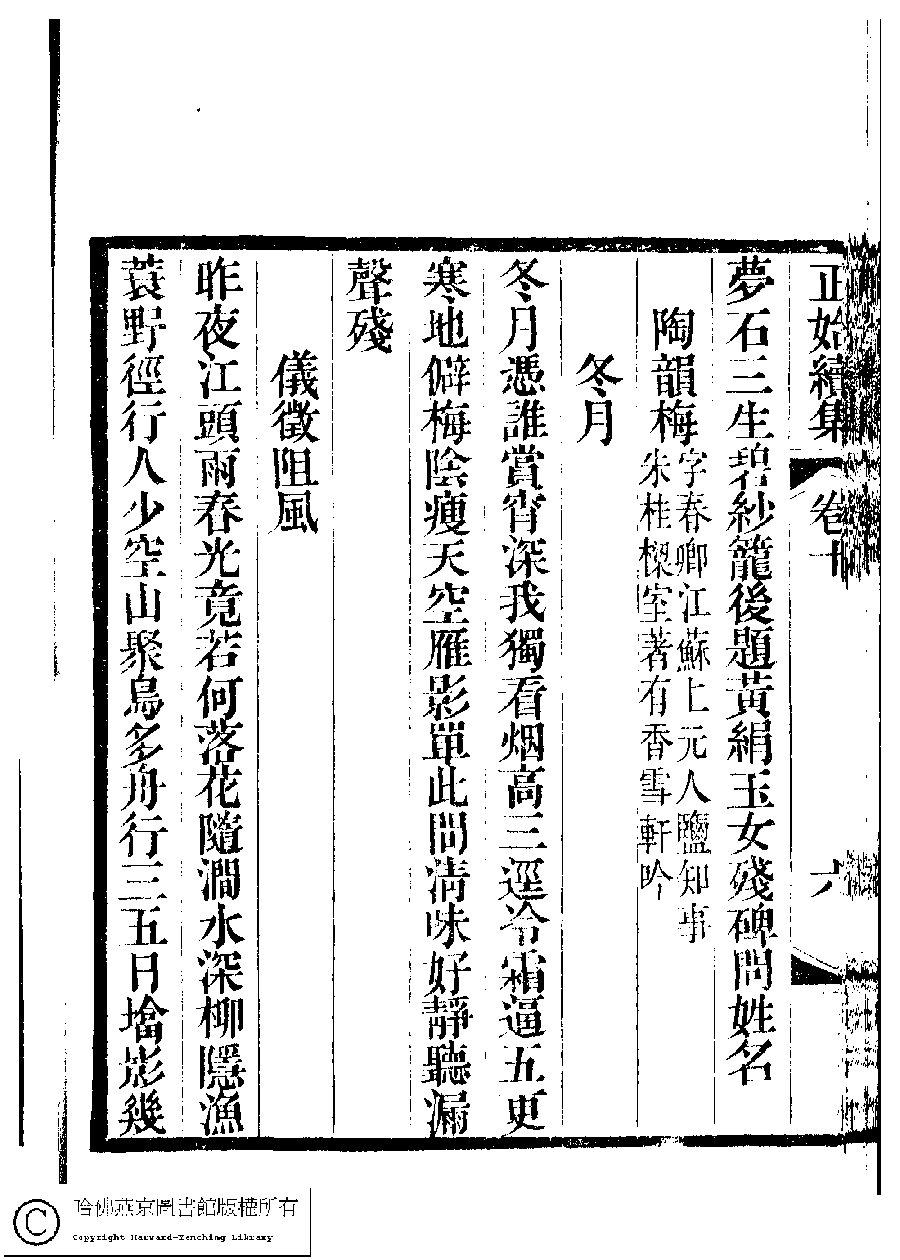 正始續集 卷十 六
夢石三生碧紗籠後題黃絹玉女殘碑問姓名
陶韻梅 字春卿江蘇上元人鹽知事
朱桂樑室著有香雪軒吟
冬月
冬月憑誰賞宵深我獨看烟高三逕冷霜逼五更
寒地僻梅陰瘦天空雁影單此間清味好靜聽漏
聲殘
儀徵阻風
昨夜江頭雨春光竟若何落花隨澗水深柳隱漁
蓑野徑行人少空山聚鳥多舟行三五日墖影幾
哈佛燕京圖書館版權所有
Copyright Harvard-Yenching Library